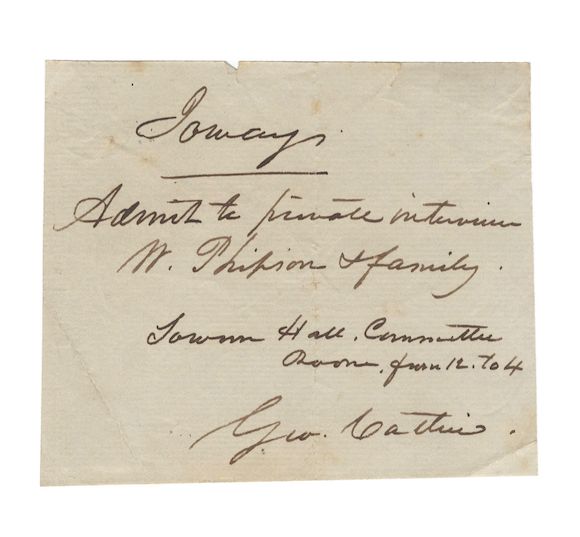 Ioways.
Admit to private interview
W. Phipson & family.
Town Hall. Committee
Room, from 12. to 4
Geo. Catlin.